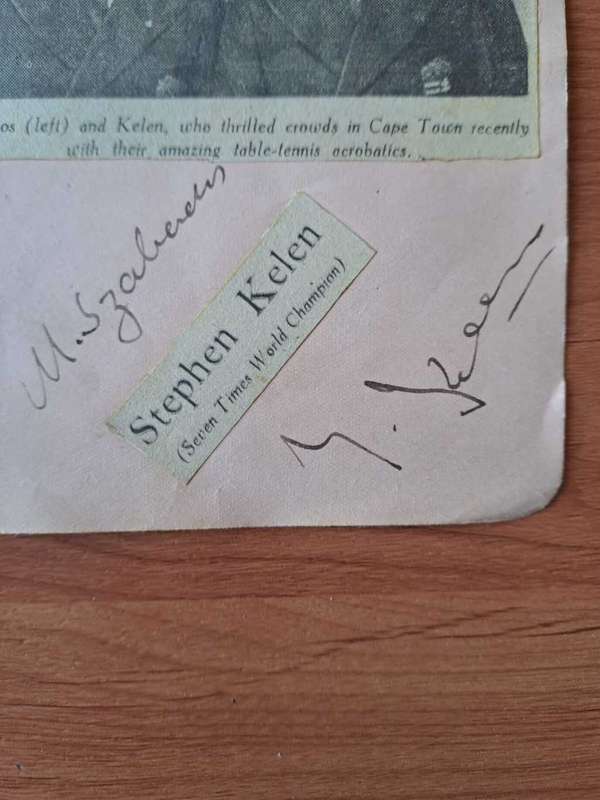 os (left) and Kelen, who thrilled crowds in Cape Town recently
with their amazing table-tennis acrobatics.
M. Szabados
Stephen Kelen
(Seven Times World Champion)
Kelen